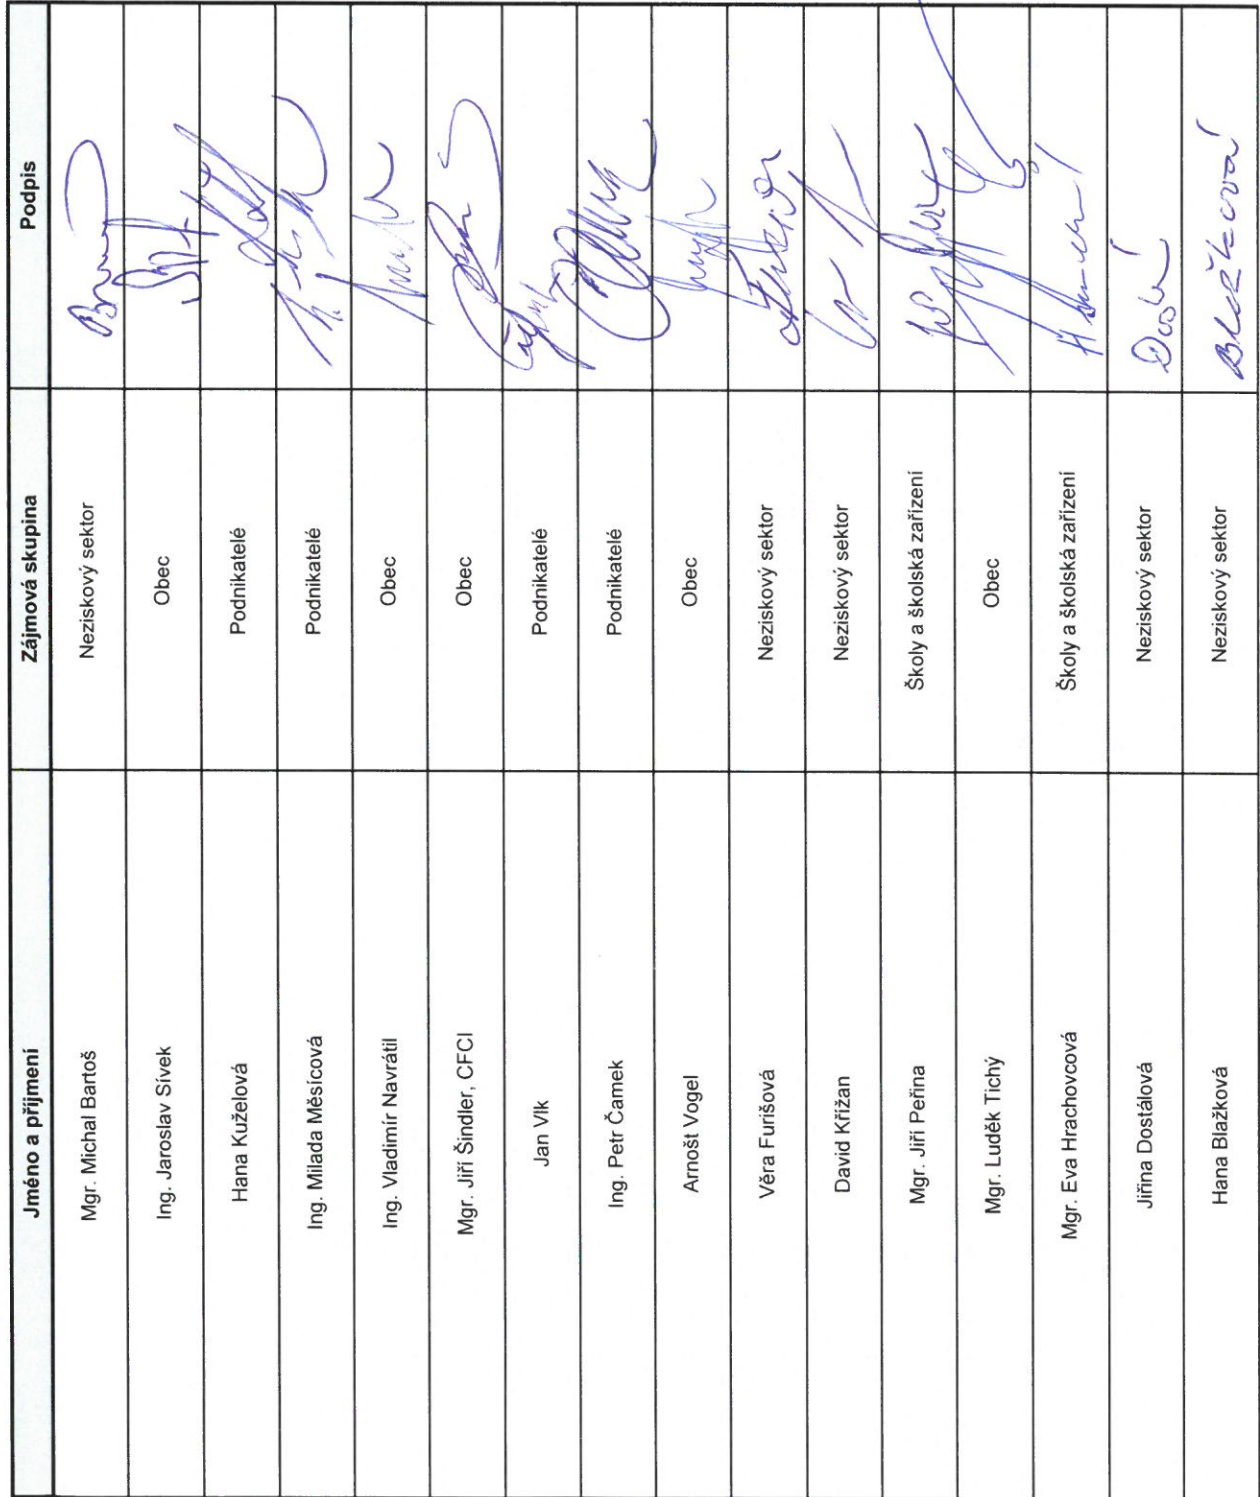 Jméno a příjmení Zájmová skupina Podpis
Mgr. Michal Bartoš Neziskový sektor
Ing. Jaroslav Sívek Obec
Hana Kuželová Podnikatelé
Ing. Milada Měsícová Podnikatelé
Ing. Vladimír Navrátil Obec
Mgr. Jiří Šindler, CFCI Obec
Jan Vlk Podnikatelé
Ing. Petr Čamek Podnikatelé
Arnošt Vogel Obec
Věra Furišová Neziskový sektor
David Křížan Neziskový sektor
Mgr. Jiří Peřina Školy a školská zařízení
Mgr. Luděk Tichý Obec
Mgr. Eva Hrachovcová Školy a školská zařízení
Jiřina Dostálová Neziskový sektor
Hana Blažková Neziskový sektor Blažková